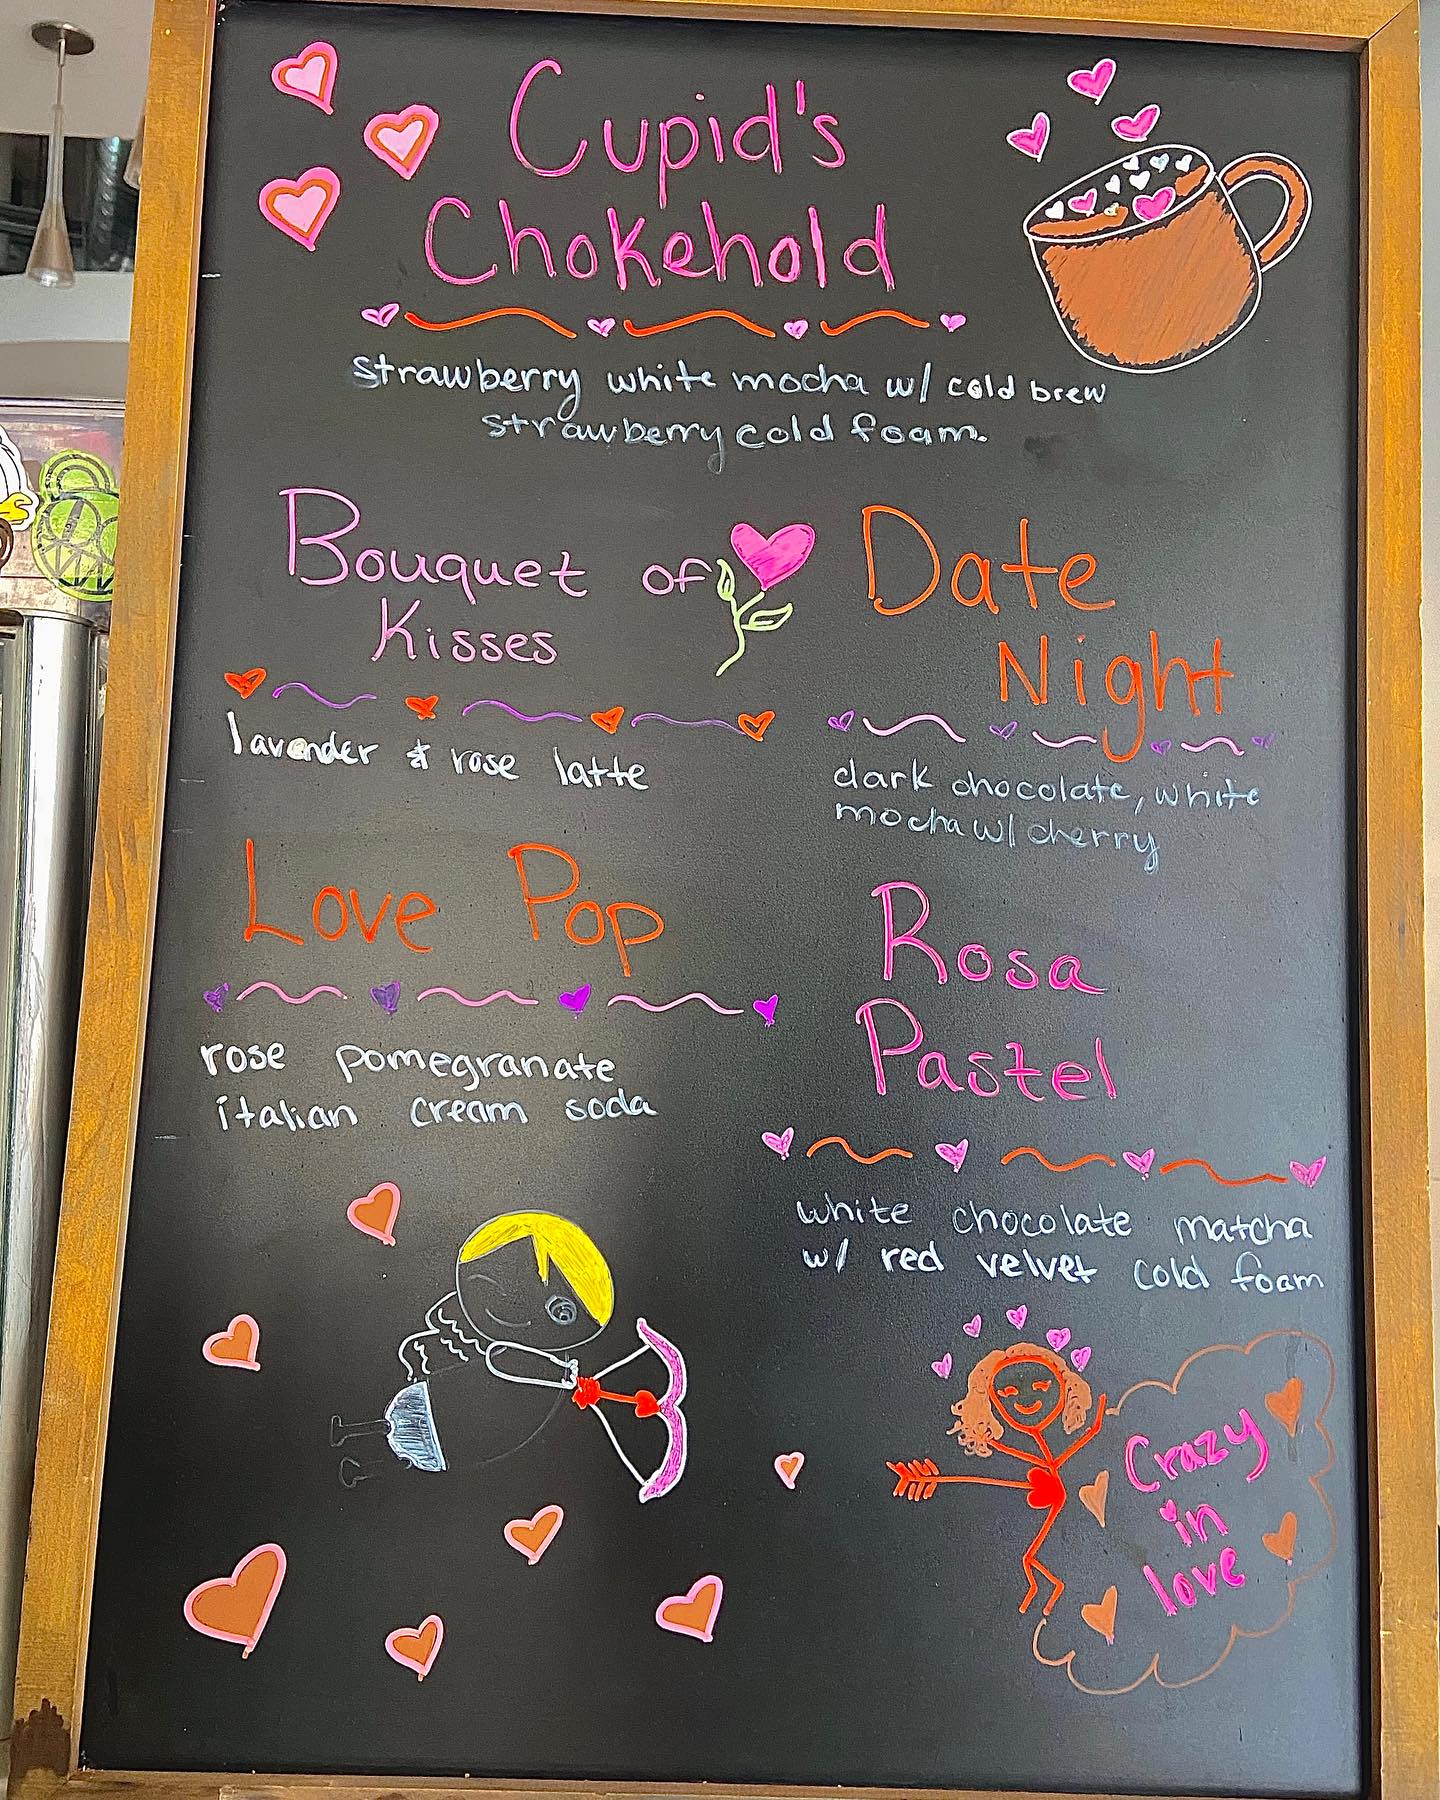 Cupid's
Chokehold
strawberry white mocha w/ cold brew
strawberry cold foam.
Bouquet of
Kisses
lavender & rose latte
Date
Night
dark chocolate, white
mocha w/ cherry
Love Pop
rose pomegranate
italian cream soda
Rosa
Pastel
white chocolate matcha
w/ red velvet cold foam
Crazy
in
love